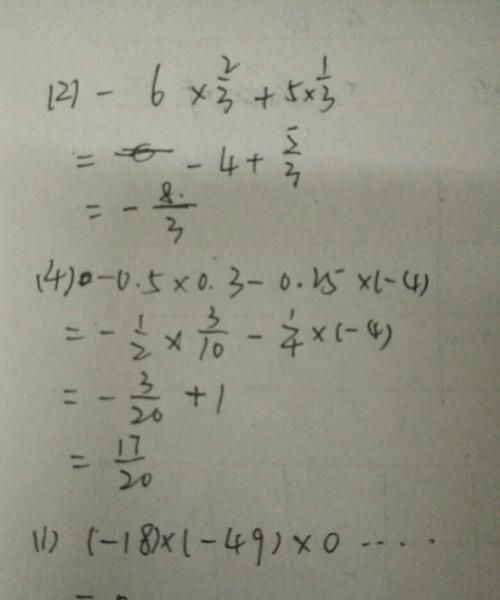 (2) - 6 × 2/3 + 5 × 1/3
= - 4 + 5/3
= - 8/3
(4) -0.5 × 0.3 - 0.25 × (-4)
= - 1/2 × 3/10 - 1/4 × (-4)
= - 3/20 + 1
= 17/20
(1) (-18) × (-49) × 0 .....
=